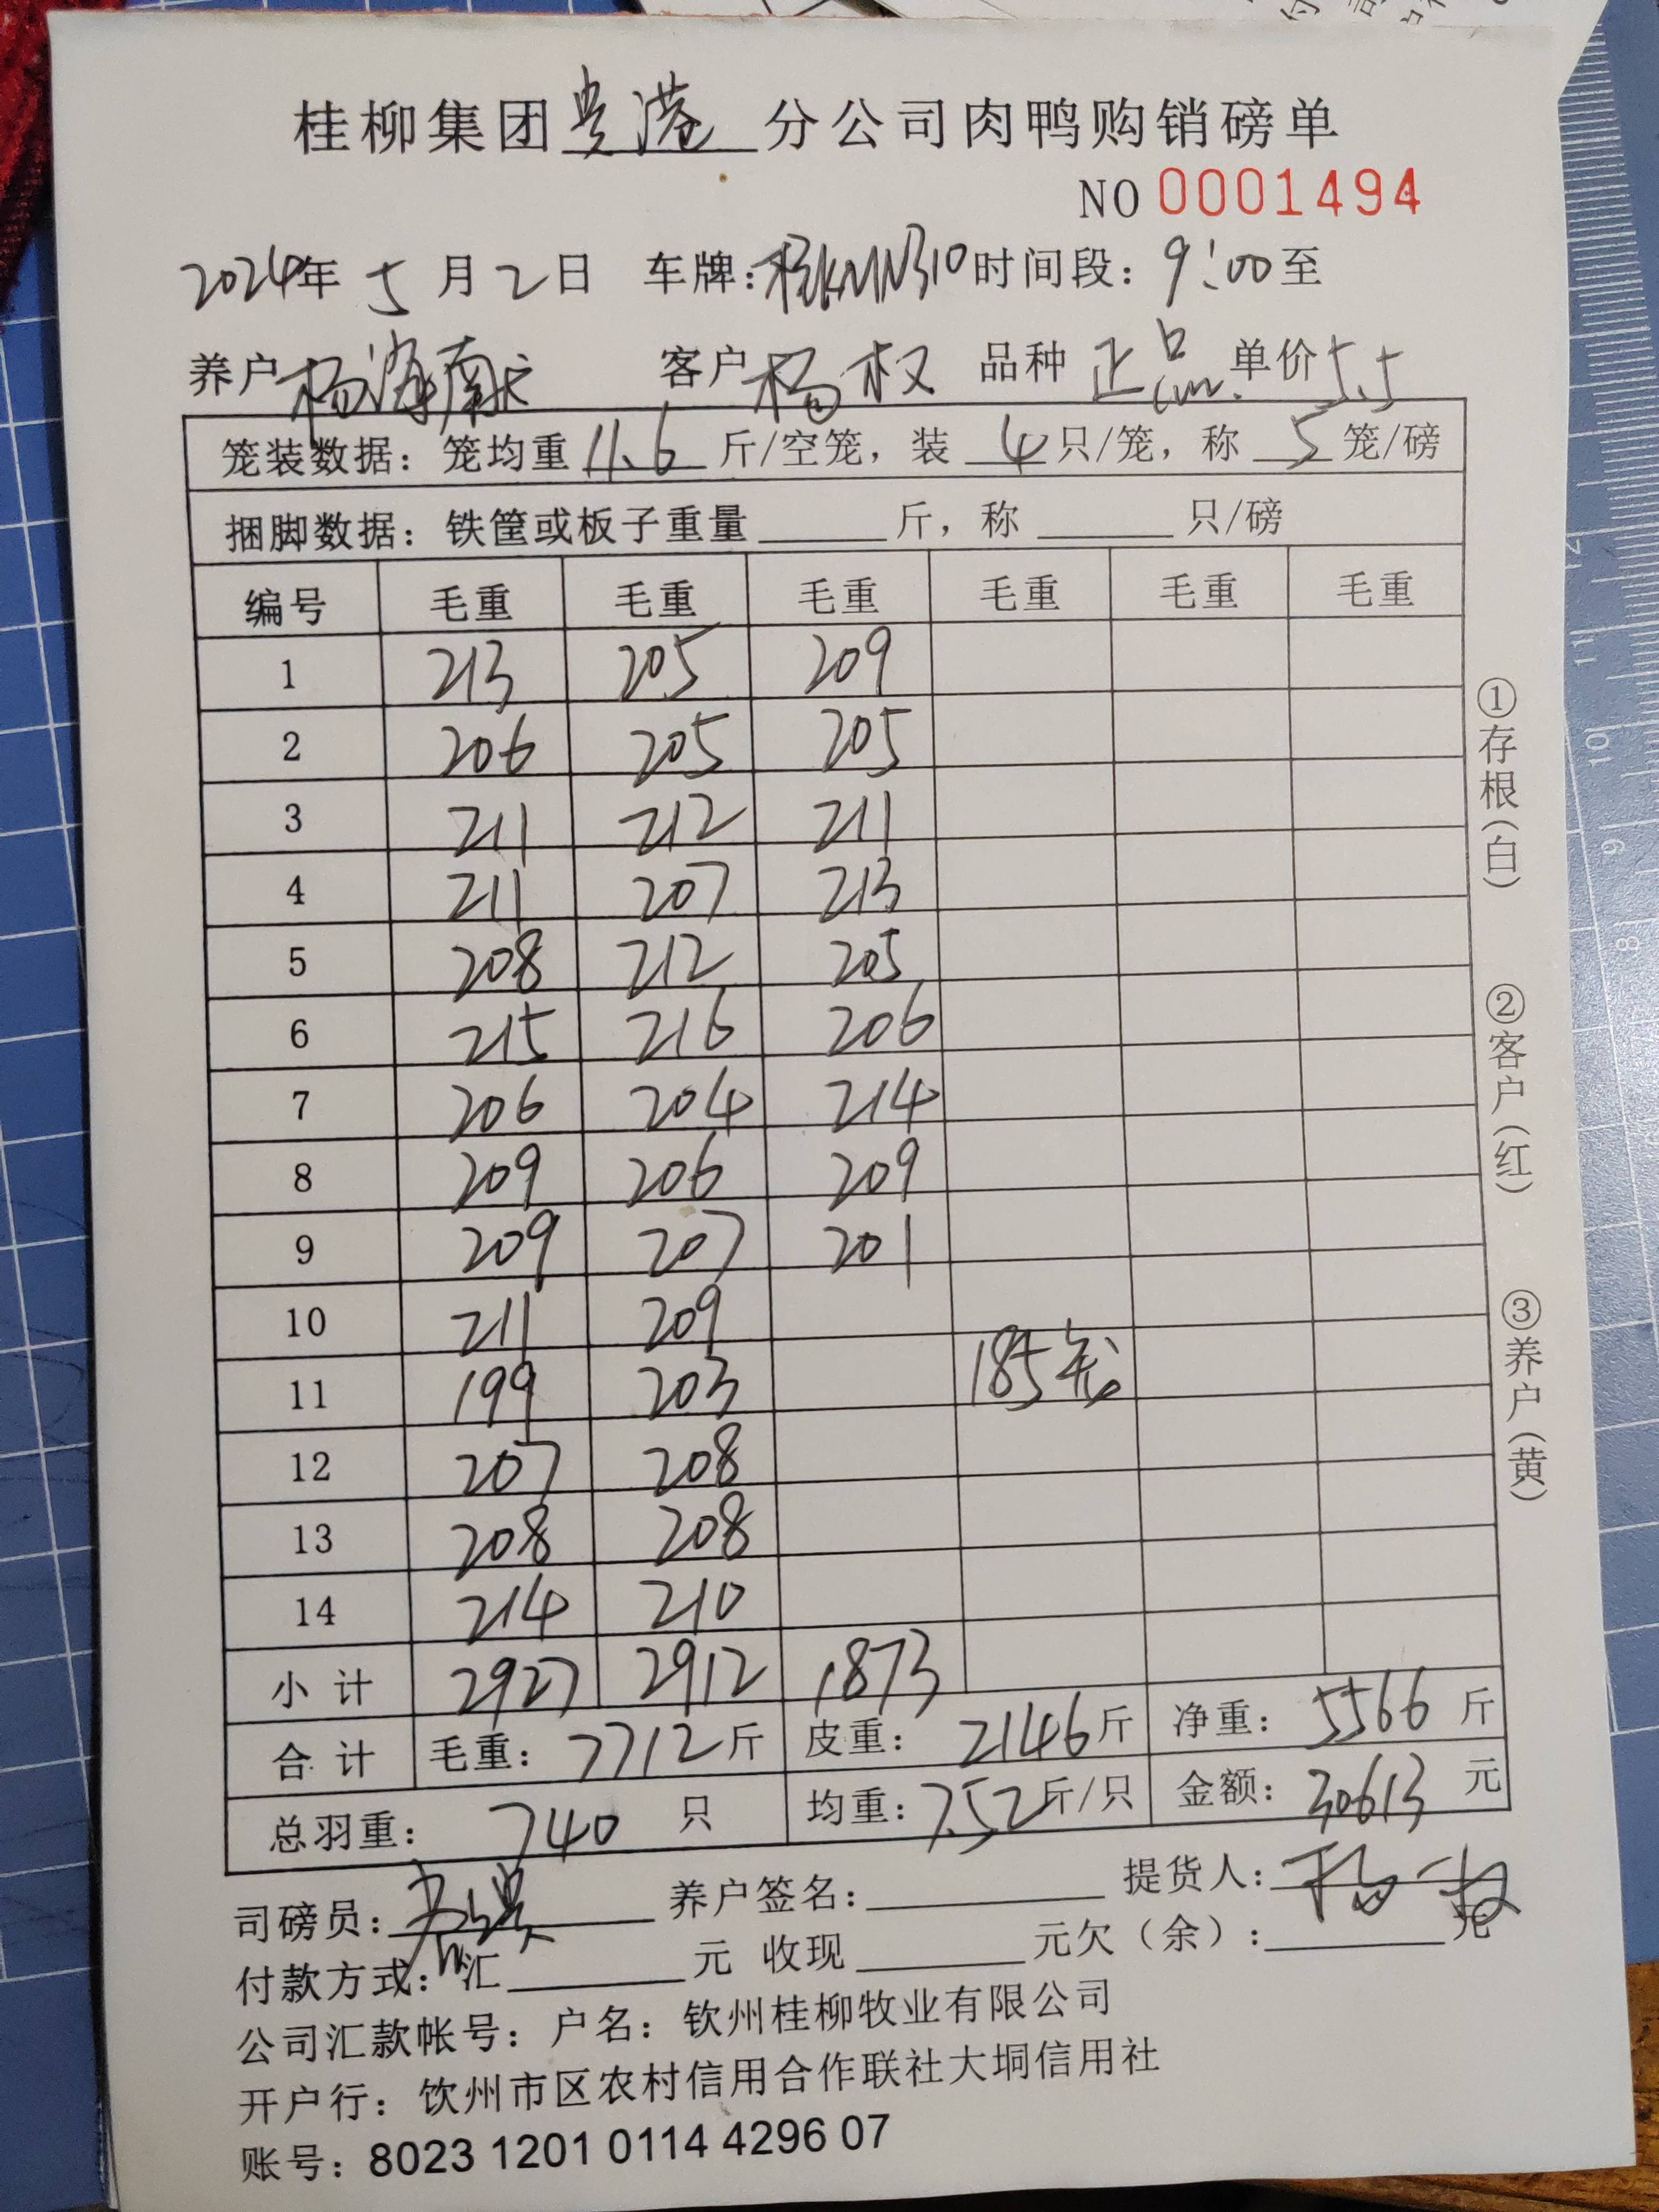 桂柳集团贵港分公司肉鸭购销磅单
NO 0001494
2024年5月2日 车牌: 时间段：9:00至
养户 杨海南 客户 杨权 品种 正品 单价 5.5
笼装数据：笼均重 11.6 斤/空笼，装 4 只/笼，称 5 笼/磅
捆脚数据：铁筐或板子重量 斤，称 只/磅
编号 毛重 毛重 毛重 毛重 毛重 毛重
1 213 205 209
2 206 205 205
3 211 212 211
4 211 207 213
5 208 212 205
6 215 216 206
7 206 204 214
8 209 206 209
9 209 207 201
10 211 209
11 199 203 185笼
12 207 208
13 208 208
14 214 210
小计 2927 2912 1873
合计 毛重：7712斤 皮重：2146斤 净重：5566斤
总羽重：740 只 均重：7.52斤/只 金额：30613 元
司磅员： 养户签名： 提货人：杨权
付款方式：汇 元 收现 元欠（余）： 元
公司汇款帐号：户名：钦州桂柳牧业有限公司
开户行：钦州市区农村信用合作联社大垌信用社
账号：8023 1201 0114 4296 07
①存根（白）
②客户（红）
③养户（黄）